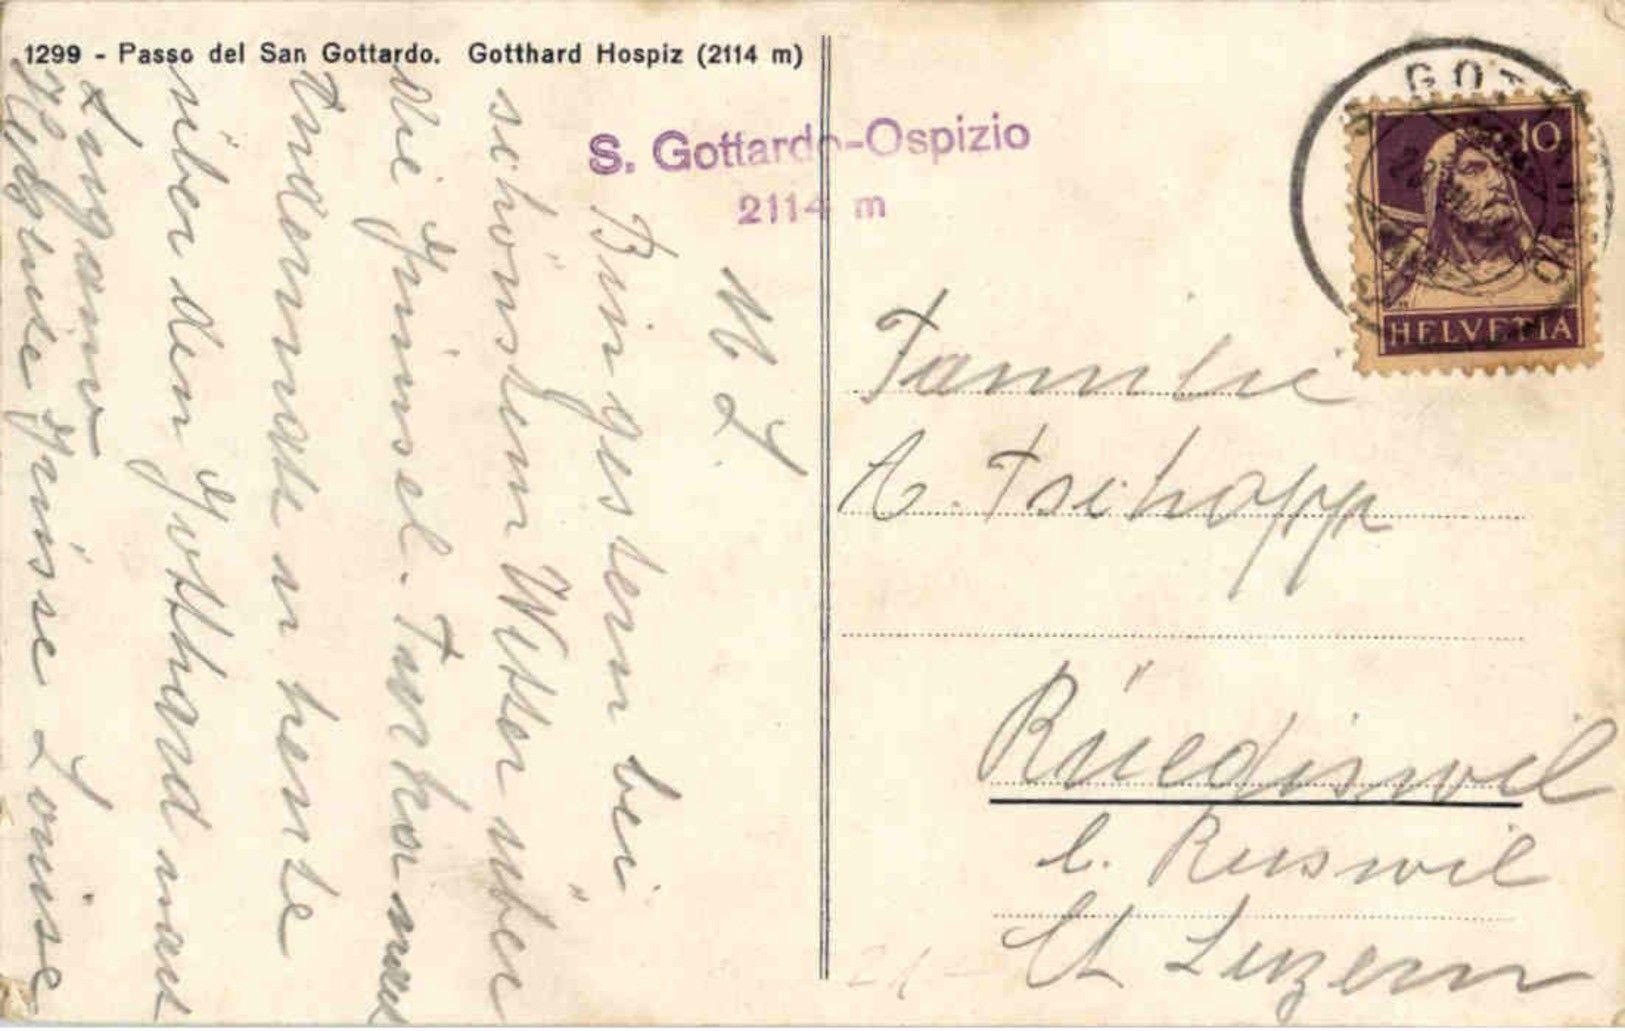 1299 - Passo del San Gottardo. Gotthard Hospiz (2114 m)
S. Gottardo-Ospizio
2114 m
M L
Bin gestern bei
schönstem Wetter über
die Grimsel - Furka nach
Andermatt u heute
über den Gotthard nach
Lugano
Herzliche Grüsse Louise
GOT
10
HELVETIA
Familie
A. Tschopp
Rüediswil
b. Ruswil
Ct Luzern